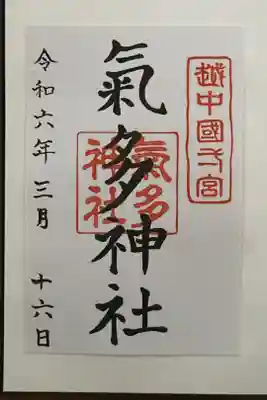 越中國宮
氣多神社
氣多
神社
令和六年三月 十六日